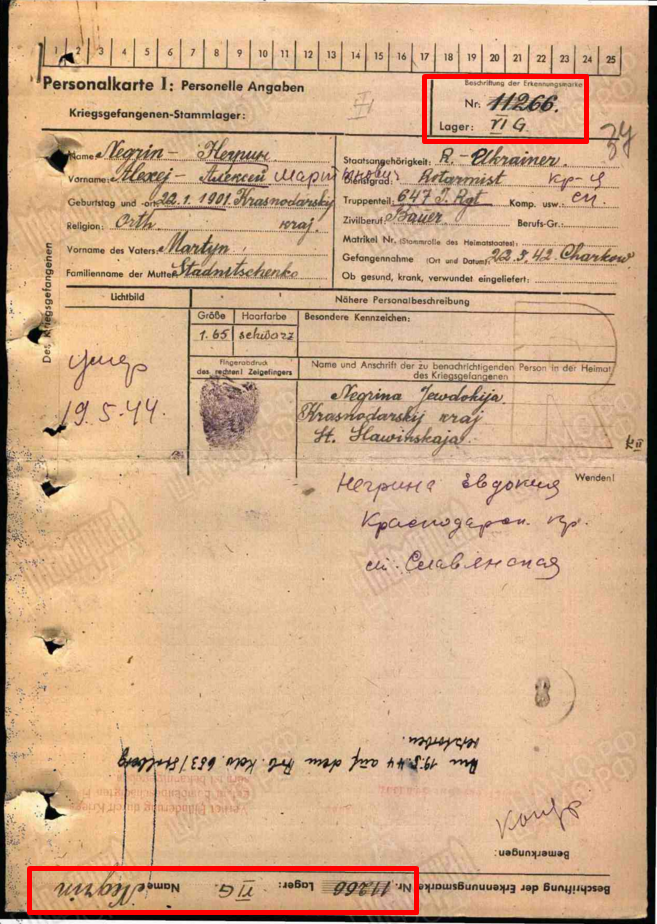 1 2 3 4 5 6 7 8 9 10 11 12 13 14 15 16 17 18 19 20 21 22 23 24 25
Personalkarte I: Personelle Angaben
Beschriftung der Erkennungsmarke
Nr. 11266.
Kriegsgefangenen-Stammlager:
Lager: VI G
Des Kriegsgefangenen
Name: Negrin - Негрин
Staatsangehörigkeit: R. - Ukrainer.
Vorname: Alexej - Алексей Мартынович
Dienstgrad: Rotarmist кр-ц
Geburtstag und -ort: 22.1.1901. Krasnodarskij kraj
Truppenteil: 647 J. Rgt Komp. usw.: сп.
Religion: Orth.
Zivilberuf: Bauer Berufs-Gr.:
Vorname des Vaters: Martyn
Matrikel Nr. (Stammrolle des Heimatstaates):
Gefangennahme (Ort und Datum): 22.5.42. Charkow.
Familienname der Mutter: Stadnitschenko
Ob gesund, krank, verwundet eingeliefert:
Lichtbild
Nähere Personalbeschreibung
Größe Haarfarbe Besondere Kennzeichen:
1.65 schwarz
умер
19.5.44.
Fingerabdruck
des rechten! Zeigefingers
Name und Anschrift der zu benachrichtigenden Person in der Heimat
des Kriegsgefangenen
Negrina Jewdokija.
Krasnodarskij kraj
St. Slawinskaja.
Wenden!
Негрина Евдокия
Краснодарск. кр.
ст. Славянская
Am 19.5.44 auf dem Arb. Kdo. 653/Stolberg
verstorben.
Bemerkungen:
Beschriftung der Erkennungsmarke Nr. 11266 Lager: VI G. Name: Negrin